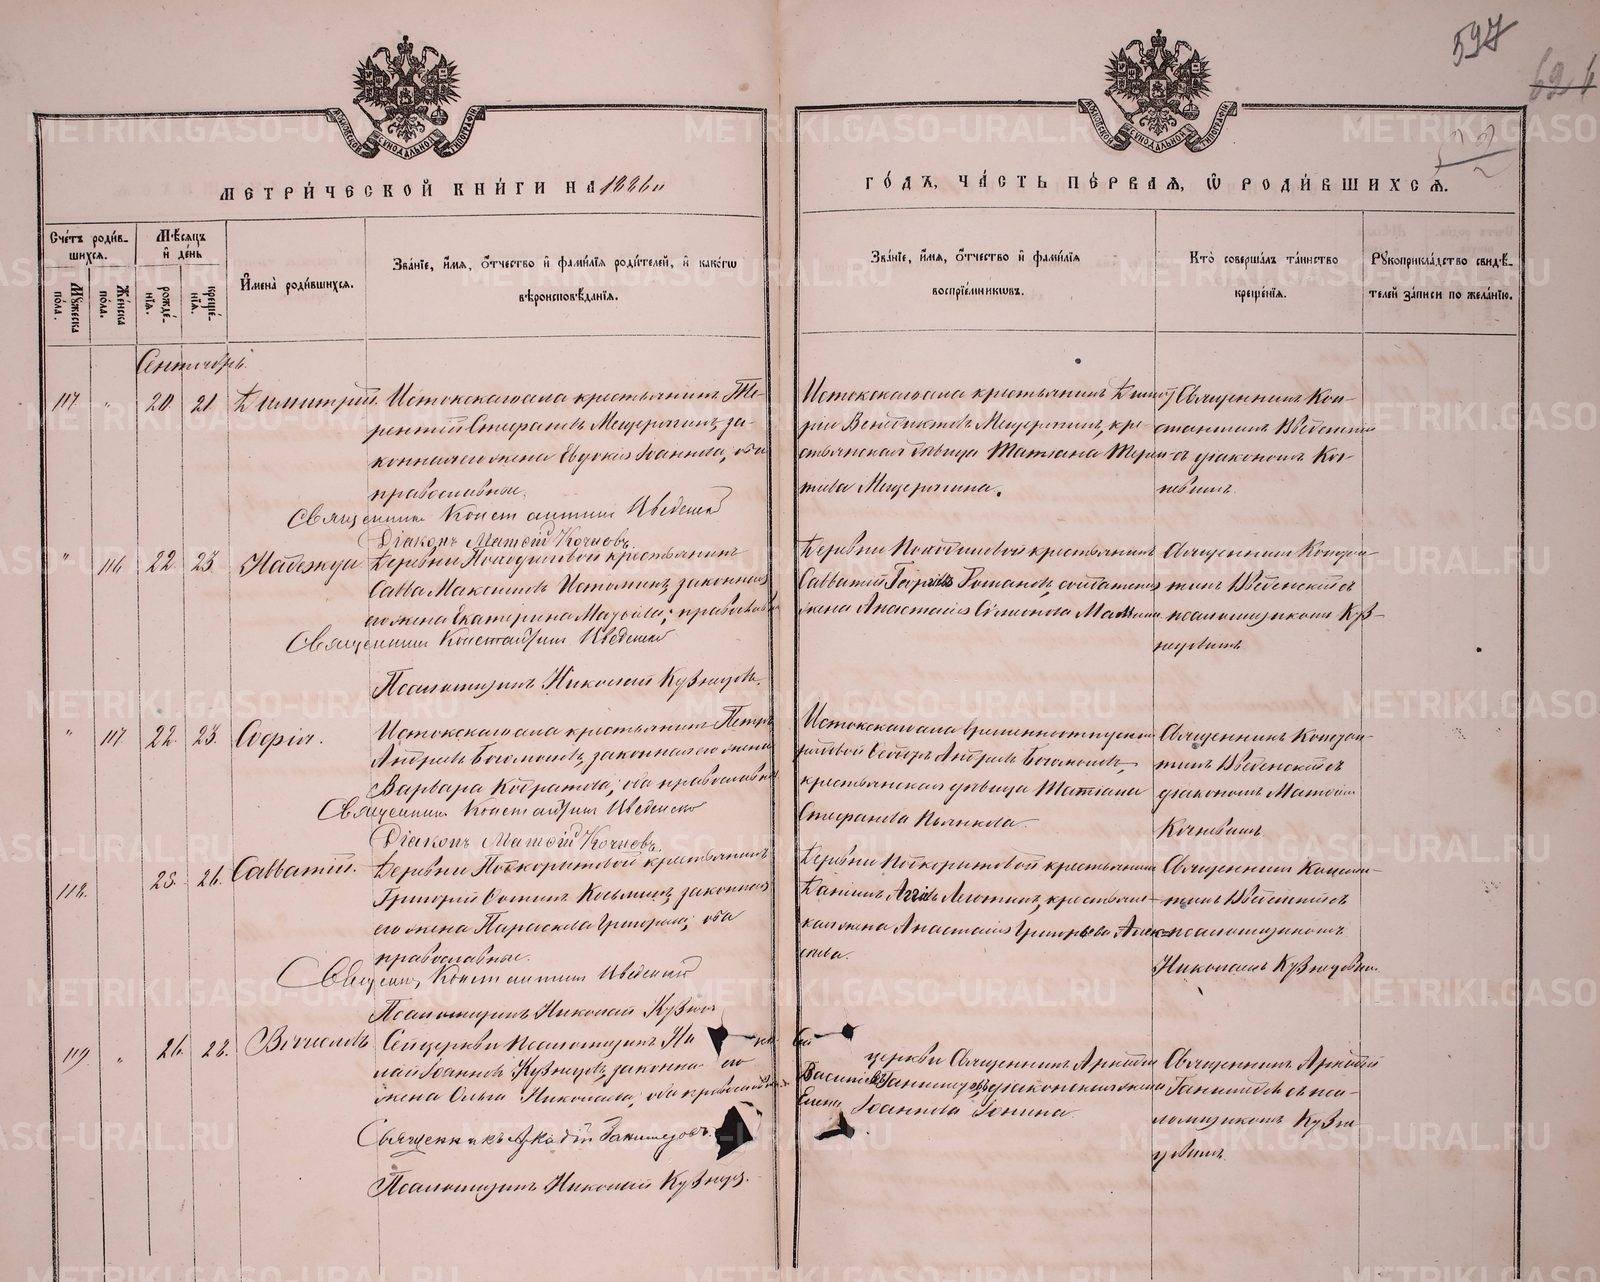 597
694
МЕТРИ́ЧЕСКОЙ КНИ́ГИ НА 1886 й
ГО́ДЪ, ЧА́СТЬ ПЕ́РВАЯ, Ѡ РОДИ́ВШИХСЯ.
Сче́тъ роди́в-
шихся.
Мѣсяцъ
и де́нь
Му́жеска
по́ла.
Же́нска
по́ла.
рожде́-
нїя.
креще́-
нїя.
И҆мена̀ роди́вшихся.
Зва́нїе, и҆́мя, ѻ҆́тчество и҆ фами́лїя роди́телей, и҆ како́гѡ
вѣроисповѣ́данїя.
Зва́нїе, и҆́мя, ѻ҆́тчество и҆ фами́лїя
воспрїе́мникѡвъ.
Кто̀ соверша́лъ та́инство
креще́нїя.
Рꙋкоприкла́дство свидѣ́-
телей за́писи по жела́нїю.
Сентябрь.
117 " 20. 21. Димитрій.
Истокскаго села крестьянинъ Те-
рентій Стефановъ Мещерягинъ, за-
конная его жена Евдокія Іоаннова, оба
православные.
Священникъ Константинъ Введенскій
Діаконъ Матѳій Кочневъ.
Истокскаго села крестьянинъ Дими-
трій Венедиктовъ Мещерягинъ, кре-
стьянская дѣвица Татіана Терен-
тьева Мещерягина.
Священникъ Кон-
стантинъ Введенскій
съ діакономъ Коч-
невымъ.
" 116 22 23 Надежда
крестьянинъ
Савва Максимовъ Истоминъ, законная
его жена Екатерина православные
Священникъ Константинъ Введенскій
Псаломщикъ Николай Кузнецовъ.
крестьянинъ
Савватій Романовъ, солдатская
жена Анастасія Симонова
Священникъ Констан-
тинъ Введенскій съ
псаломщикомъ Куз-
нецовымъ
" 117 22. 23. Софія.
Истокскаго села крестьянинъ Петръ
Андреевъ Богомоловъ, законная его жена
Варвара Кодратова, оба православные
Священникъ Константинъ Введенскій
Діаконъ Матѳій Кочневъ.
Истокскаго села временноотпускной
рядовой Ѳедоръ Андреевъ Богомоловъ,
крестьянская дѣвица Татіана
Стефанова Пьянкова.
Священникъ Констан-
тинъ Введенскій съ
діакономъ Матѳіемъ
Кочневымъ
118. 25. 26. Савватій.
Деревни Подкорытовой крестьянинъ
Григорій Козьминъ, законная
его жена Параскева Григорьева, оба
православные.
Священникъ Константинъ Введенскій
Псаломщикъ Николай Кузнецовъ
Деревни Подкорытовой крестьянинъ
Даніилъ крестьян-
ская жена Анастасія Григорьева Алек-
сѣева.
Священникъ Констан-
тинъ Введенскій съ
псаломщикомъ
Николаемъ Кузнецовымъ.
119. " 26. 28. Вячеславъ
Сей церкви псаломщикъ Ни
лай Іоанновъ Кузнецовъ, законная его
жена Ольга Николаева, оба православные
Священникъ Аркадій Ганимедовъ.
Псаломщикъ Николай Кузнец.
Сей
церкви Священникъ Аркадій
Васильевъ Ганимедовъ, діаконская жена
Елена Іоаннова Іонина.
Священникъ Аркадій
Ганимедовъ съ пса-
ломщикомъ Кузне-
цовымъ.